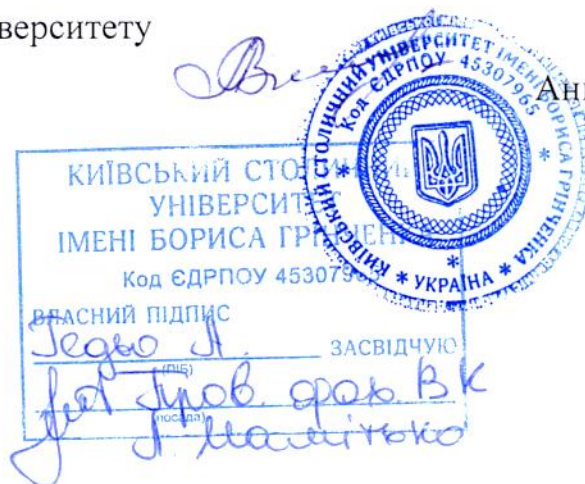 верситету
Ан
КИЇВСЬКИЙ СТОЛИЧНИЙ УНІВЕРСИТЕТ ІМЕНІ БОРИСА ГРІНЧЕНКА
* УКРАЇНА *
Код ЄДРПОУ 45307965
КИЇВСЬКИЙ СТОЛИЧНИЙ
УНІВЕРСИТЕТ
ІМЕНІ БОРИСА ГРІНЧЕНКА
Код ЄДРПОУ 45307965
ВЛАСНИЙ ПІДПИС
Гедьо А. ЗАСВІДЧУЮ
(ПІБ)
Пров. фах. ВК
(посада)